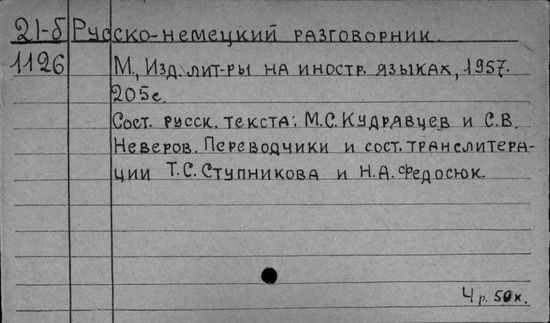 21-б Русско-немецкий разговорник.
1126 М., Изд. лит-ры на иностр. языках, 1957.
205 с.
Сост. русск. текста: М.С. Кудрявцев и С.В.
Неверов. Переводчики и сост. транслитера-
ции Т.С. Ступникова и Н.А. Федосюк.
4 р. 50 к.